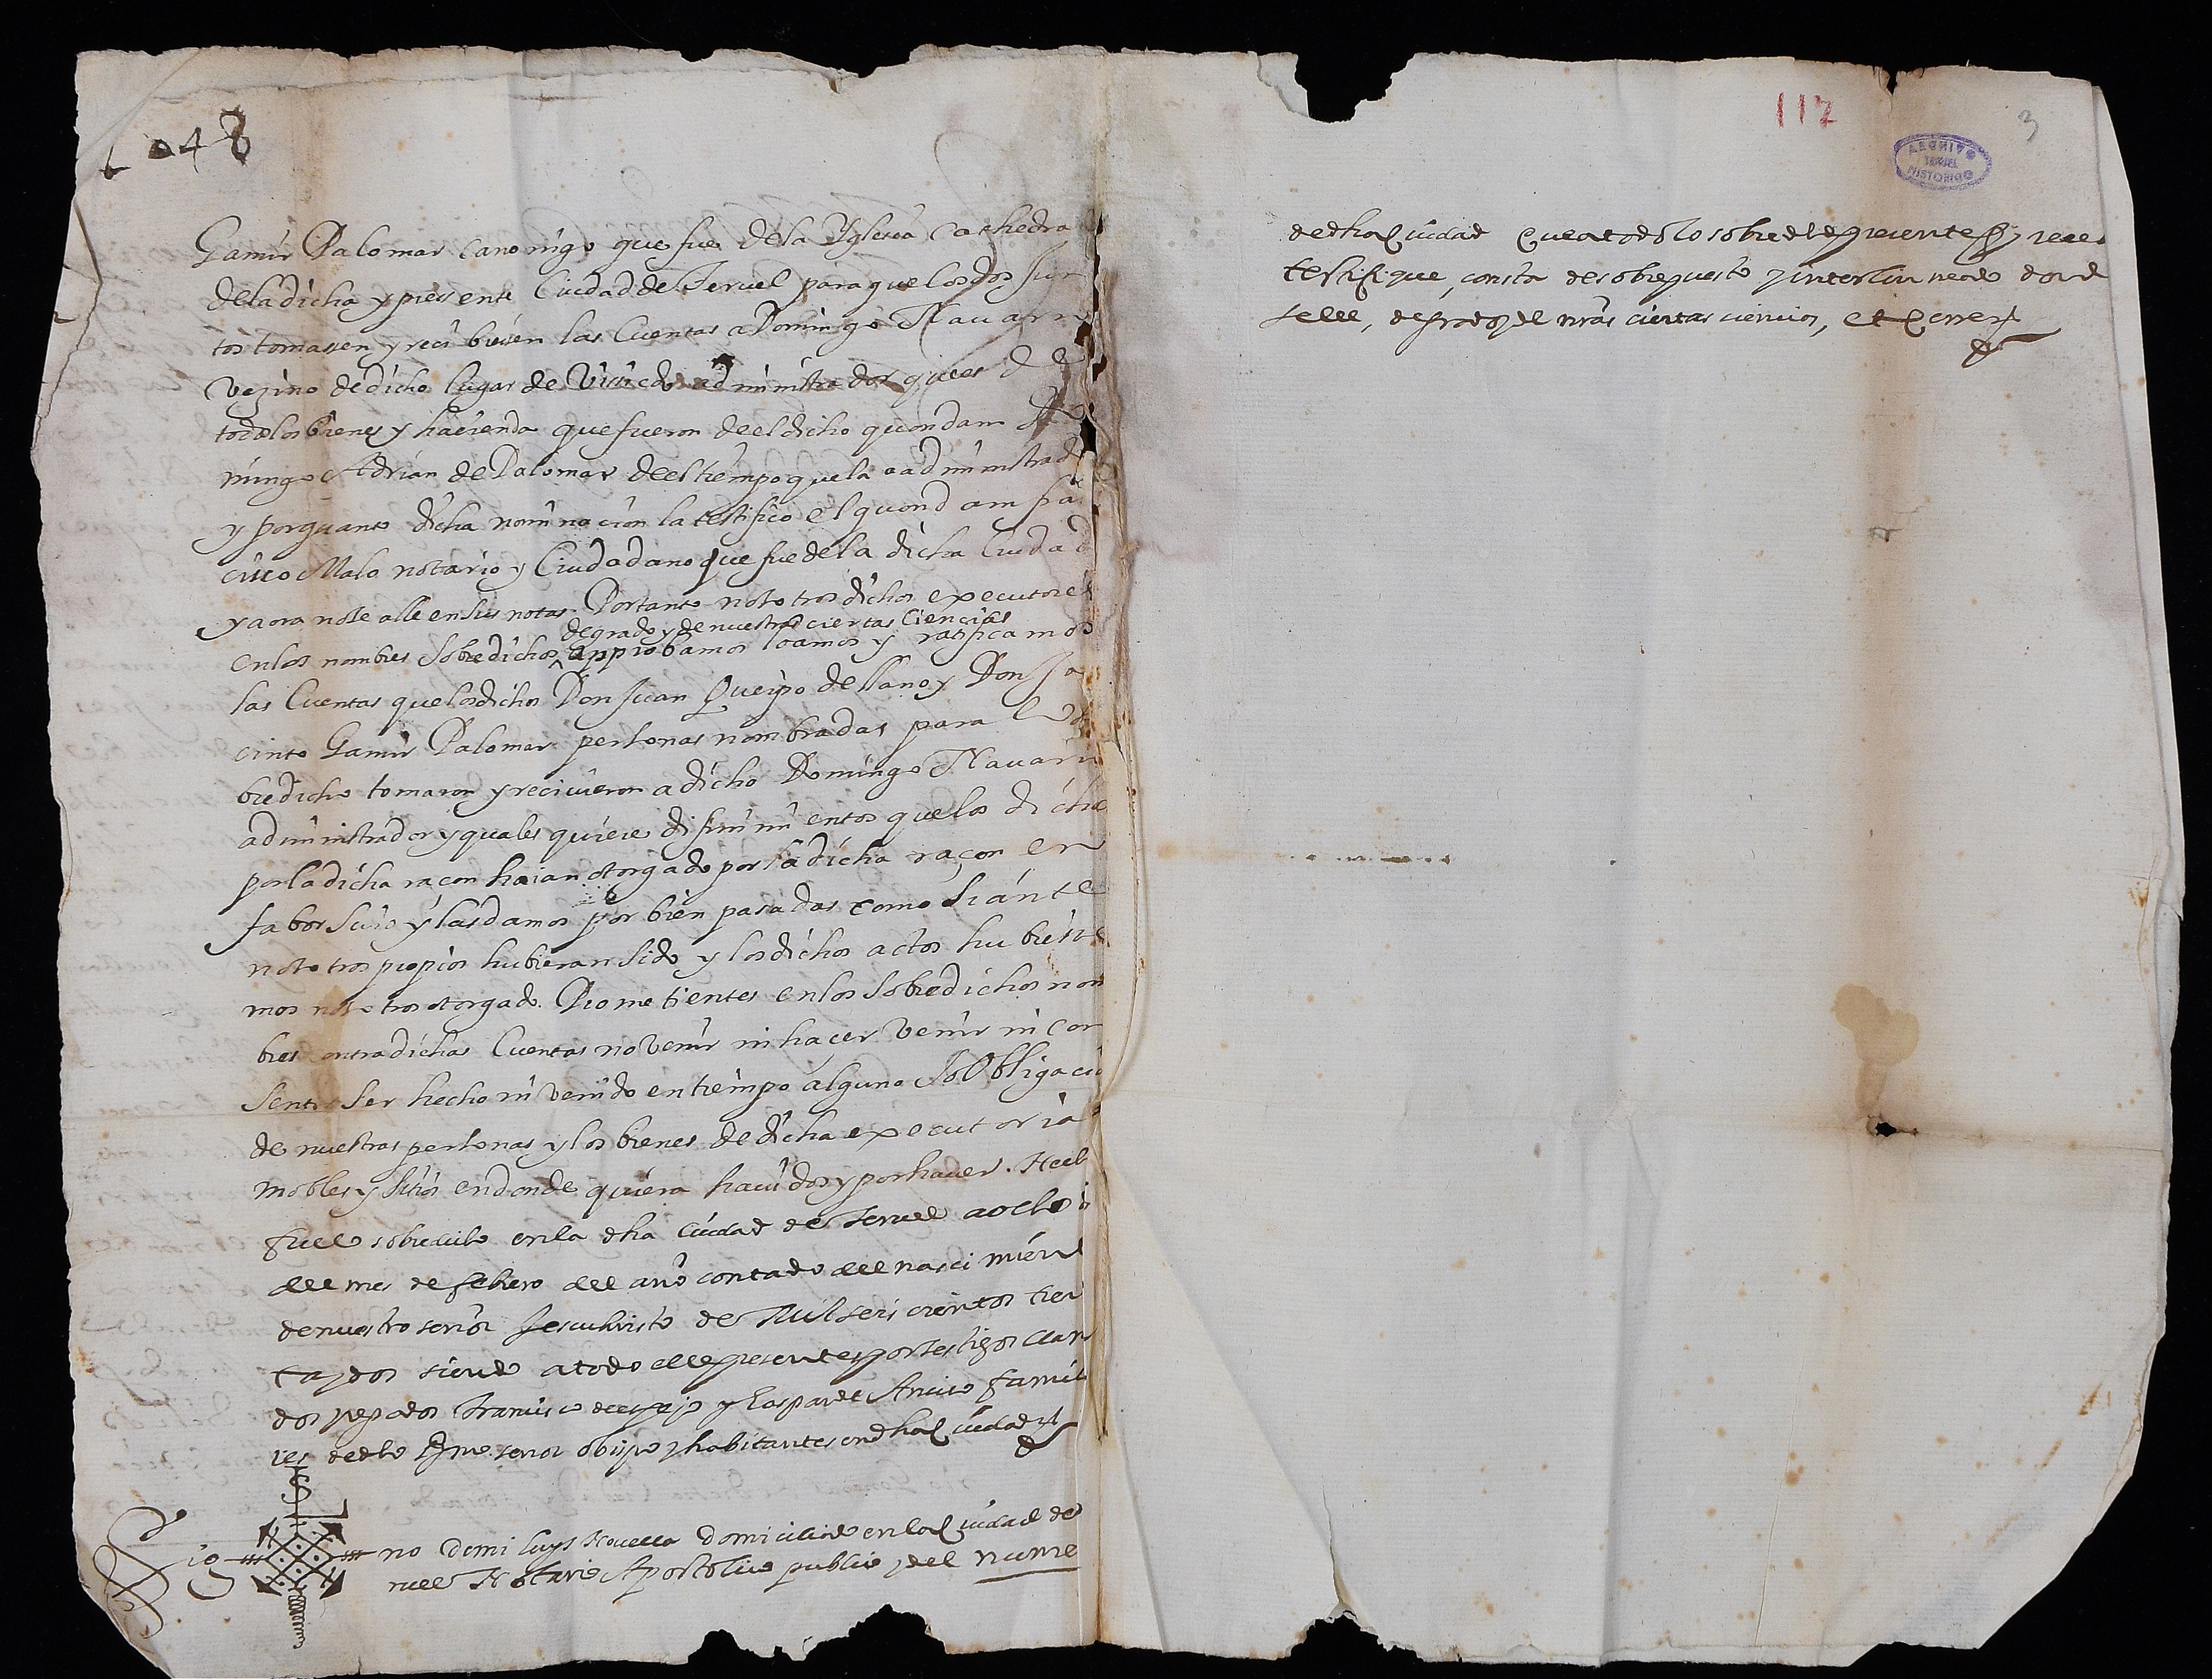 1048
Gamir Palomar canonigo que fue de la Yglesia Cathedra
de la dicha y presente Ciudad de Teruel para que los dos jun
tos tomassen y recibiesen las Cuentas a Domingo Nauarr
vezino de dicho lugar de Visiedo administrador que es de
todos los bienes y hacienda que fueron de el dicho quondam Do
mingo Adrian de Palomar de el tiempo que la a administrad
y por quanto dicha nominacion la testifico el quondam fra
cisco Malo notario y Ciudadano que fue de la dicha Ciudad
y aora no se alle en sus notas. Por tanto nosotros dichos executores
de grado y de nuestras ciertas Ciencias
en los nombres sobredichos approbamos loamos y ratificamos
las Cuentas que los dichos Don Juan Queipo de llano y Don Ja
cinto Gamir Palomar personas nombradas para lo so
bredicho tomaron y recivieron a dicho Domingo Nauarr
administrador y quales quiere difinimientos que los dicho
por la dicha raçon haian otorgado por la dicha raçon en
fabor suio y las damos por bien pasadas como si ante
nosotros propios hubieran sido y los dichos actos hubiese
mos nosotros otorgado. Prometientes en los sobredichos nom
bres contra dichas Cuentas no venir ni hacer venir ni con
sentir ser hecho ni venido en tiempo alguno so obligacio
de nuestras personas y los bienes de dicha executoria
mobles y sitios en donde quiera hauidos y por hauer. Hech
fue lo sobredicho en la dha Ciudad de Teruel a ocho
del mes de febrero del año contado del nascimient
de nuestro señor Jesuchristo de Mil seis cientos trein
ta y dos siendo a todo ello presentes por testigos
Francisco de espejo y Gaspar de famili
res de dho señor obispo y habitantes en dha Ciudad
Sig no de mi luys Nouella domiciliado en la Ciudad de
ruel Notario Apostolico publico y del nume
112
3
ARCHIVO HISTORICO TERUEL
de dha Ciudad que a todo lo sobredicho presente fuy
testifique, consta de sobrepuesto y interlineado donde
se lee, de grado y de nras ciertas ciencias, et cerre